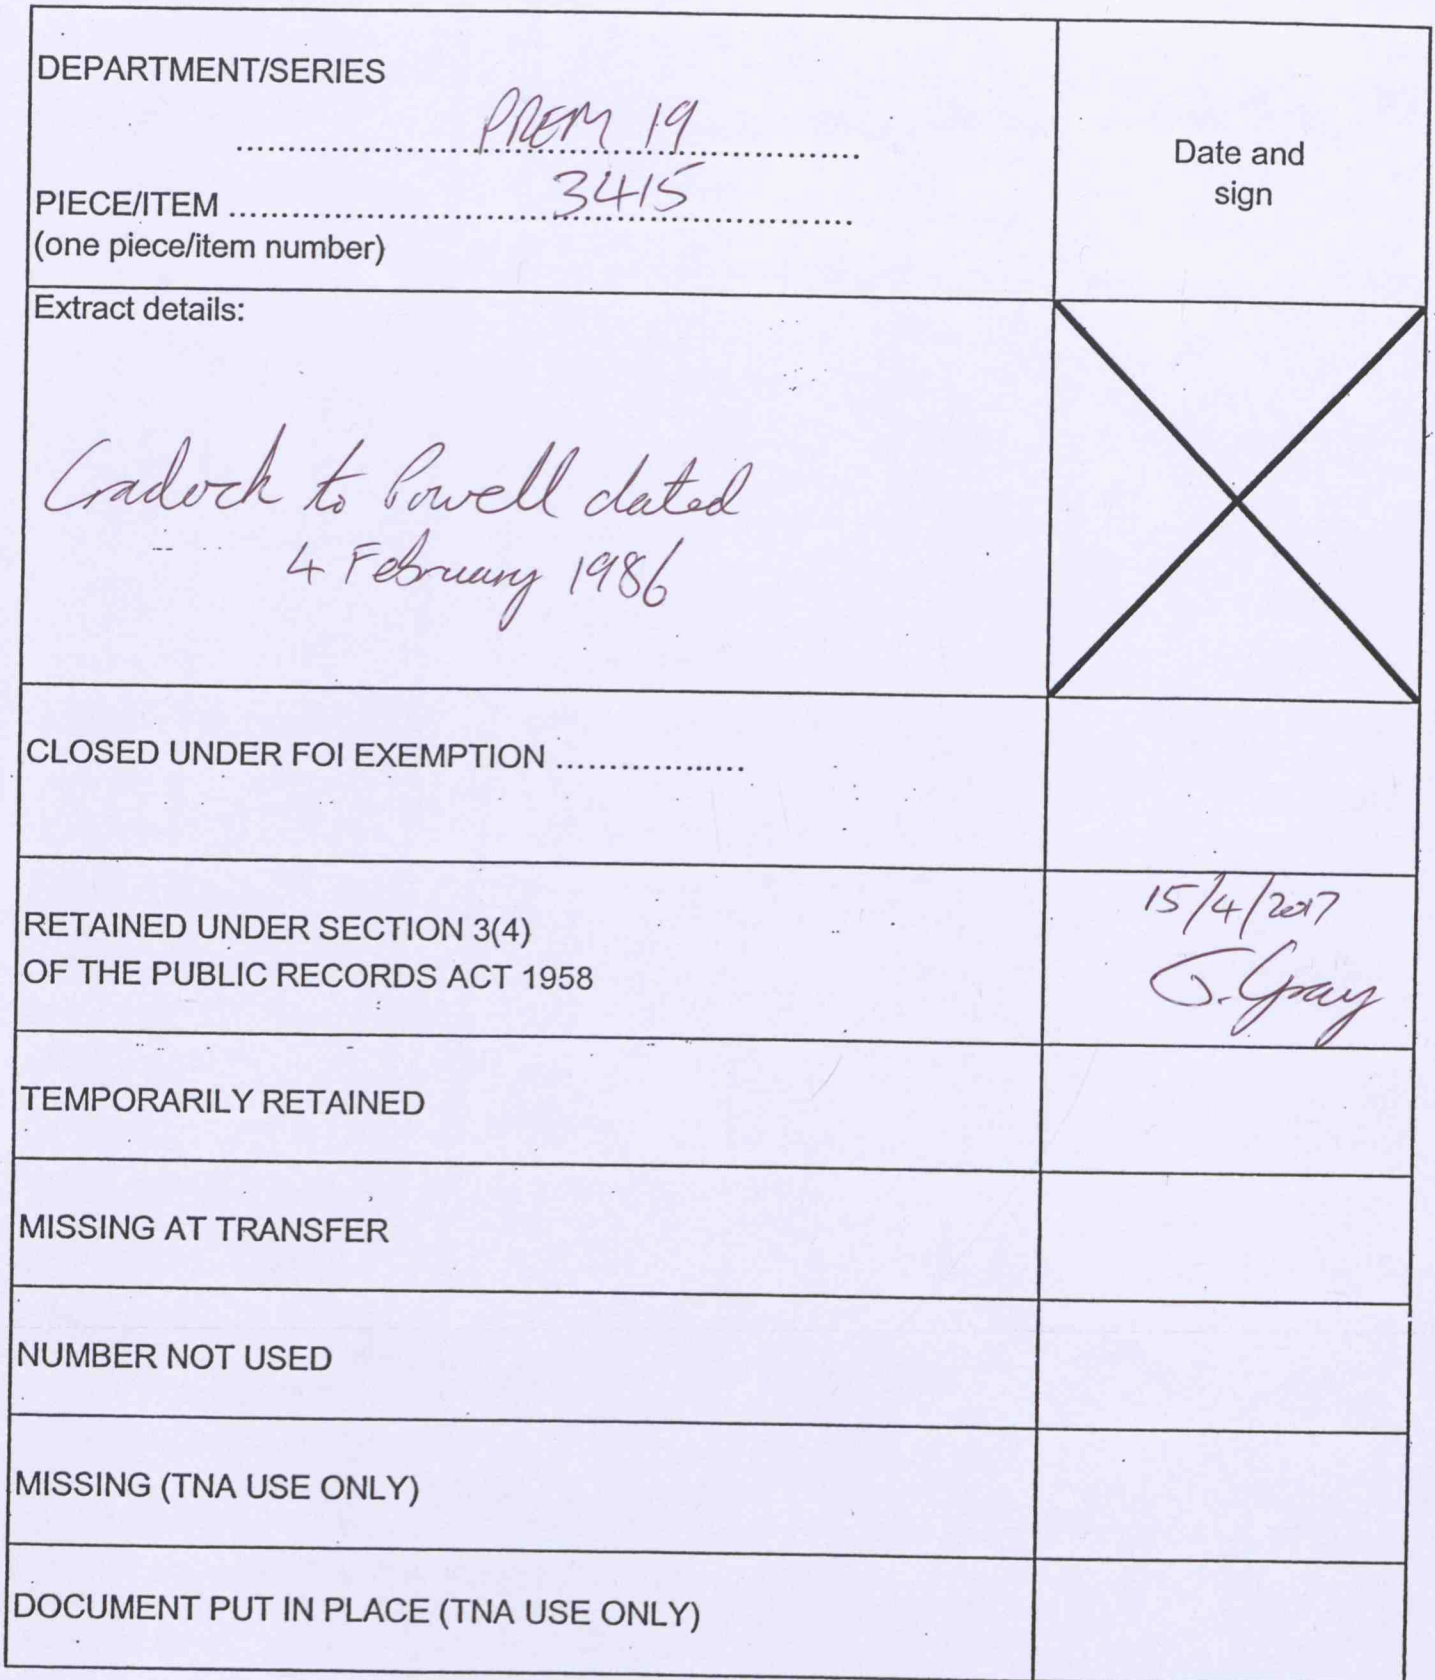 DEPARTMENT/SERIES
PREM 19
Date and
sign
PIECE/ITEM 3415
(one piece/item number)
Extract details:
Cradock to Powell dated
4 February 1986
CLOSED UNDER FOI EXEMPTION ..................
RETAINED UNDER SECTION 3(4)
OF THE PUBLIC RECORDS ACT 1958
15/4/2017
S. Gray
TEMPORARILY RETAINED
MISSING AT TRANSFER
NUMBER NOT USED
MISSING (TNA USE ONLY)
DOCUMENT PUT IN PLACE (TNA USE ONLY)